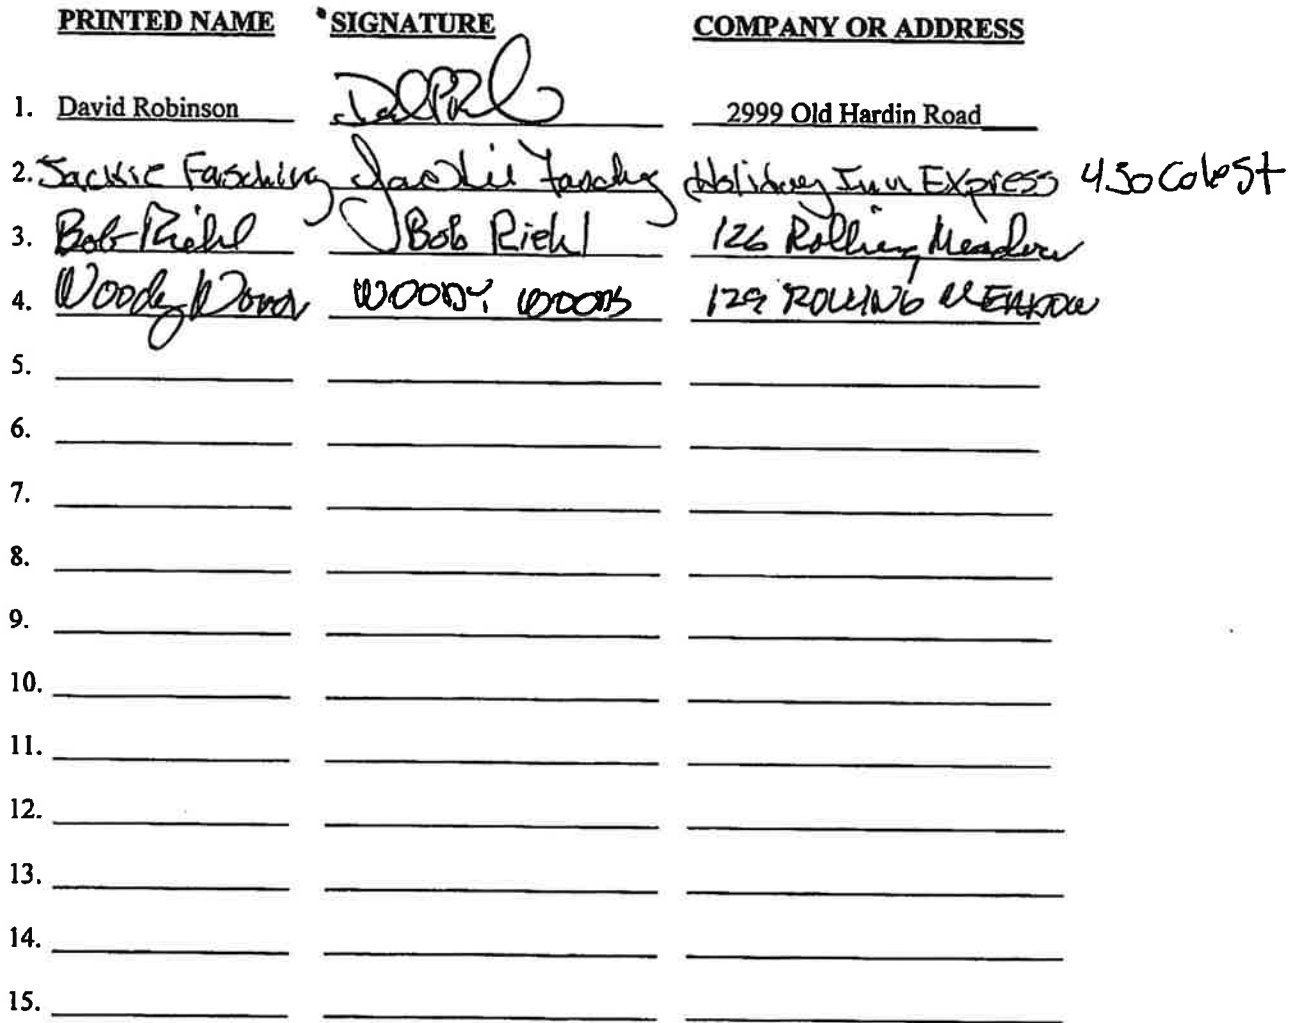 PRINTED NAME SIGNATURE COMPANY OR ADDRESS
1. David Robinson 2999 Old Hardin Road
2. Jackie Fasching Jackie Fasching Holiday Inn Express 430 Cole St
3. Bob Riehl Bob Riehl 126 Rolling Meadow
4. Woody Woods WOODY WOODS 129 ROLLING MEADOW
5.
6.
7.
8.
9.
10.
11.
12.
13.
14.
15.